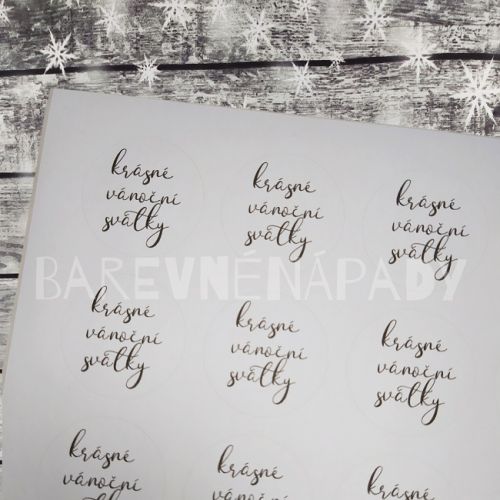 krásné
vánoční
svátky
krásné
vánoční
svátky
krásné
vánoční
svátky
BAREVNÉNÁPADY
krásné
vánoční
svátky
krásné
vánoční
svátky
krásné
vánoční
svátky
krásné
vánoční
krásné
vánoční
krásné